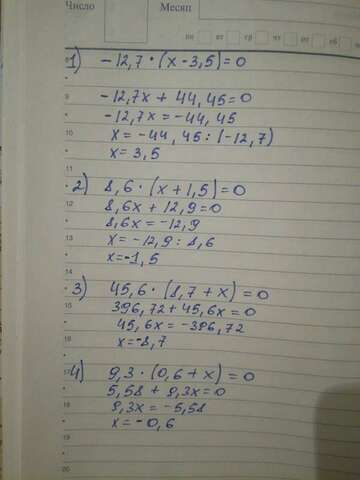 Число
Месяц
пн вт ср чт пт сб
1) -12,7 · (x - 3,5) = 0
9
-12,7x + 44,45 = 0
-12,7x = -44,45
10
x = -44,45 : (-12,7)
x = 3,5
2) 8,6 · (x + 1,5) = 0
12
8,6x + 12,9 = 0
8,6x = -12,9
13
x = -12,9 : 8,6
x = -1,5
3) 45,6 · (8,7 + x) = 0
15
396,72 + 45,6x = 0
45,6x = -396,72
16
x = -8,7
4) 9,3 · (0,6 + x) = 0
18
5,58 + 9,3x = 0
9,3x = -5,58
x = -0,6
19
20